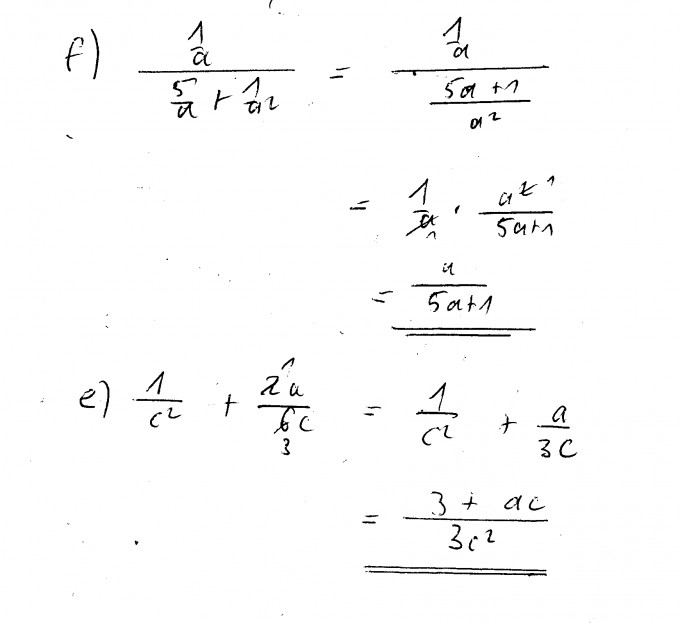 f) \frac{\frac{1}{a}}{\frac{5}{a} + \frac{1}{a^2}} = \frac{\frac{1}{a}}{\frac{5a+1}{a^2}}
= \frac{1}{a} · \frac{a^2}{5a+1}
= \frac{a}{5a+1}
e) \frac{1}{c^2} + \frac{2a}{6c} = \frac{1}{c^2} + \frac{a}{3c}
= \frac{3 + ac}{3c^2}